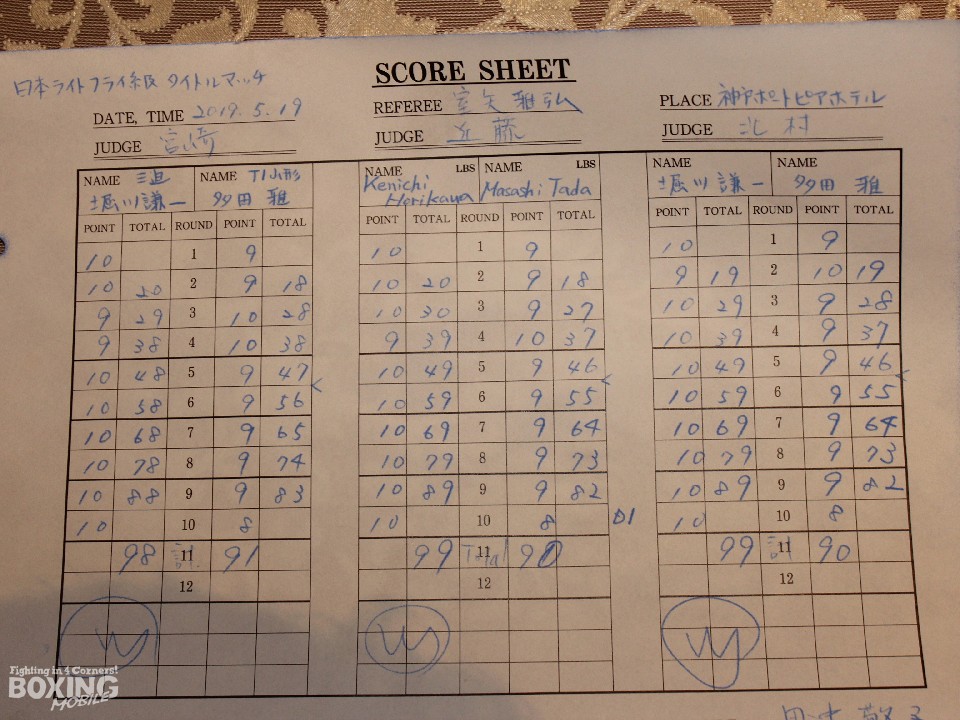 SCORE SHEET
日本ライトフライ級 タイトルマッチ
DATE, TIME 2019. 5. 19
REFEREE 室矢 雅弘
PLACE 神戸ポートピアホテル
JUDGE 宮崎
JUDGE 近藤
JUDGE 北村
NAME 三迫 NAME TI山形
堀川謙一 多田 雅
NAME LBS NAME LBS
Kenichi Horikawa Masashi Tada
NAME NAME
堀川謙一 多田 雅
POINT TOTAL ROUND POINT TOTAL POINT TOTAL ROUND POINT TOTAL POINT TOTAL ROUND POINT TOTAL
10 1 9 10 1 9 10 1 9
10 20 2 9 18 10 20 2 9 18 9 19 2 10 19
9 29 3 10 28 10 30 3 9 27 10 29 3 9 28
9 38 4 10 38 9 39 4 10 37 10 39 4 9 37
10 48 5 9 47 10 49 5 9 46 10 49 5 9 46
10 58 6 9 56 10 59 6 9 55 10 59 6 9 55
10 68 7 9 65 10 69 7 9 64 10 69 7 9 64
10 78 8 9 74 10 79 8 9 73 10 79 8 9 73
10 88 9 9 83 10 89 9 9 82 10 89 9 9 82
10 10 8 10 10 8 D1 10 10 8
98 計 11 91 99 Total 11 90 99 計 11 90
12 12 12
Fighting in 4 Corners!
BOXING
MOBILE